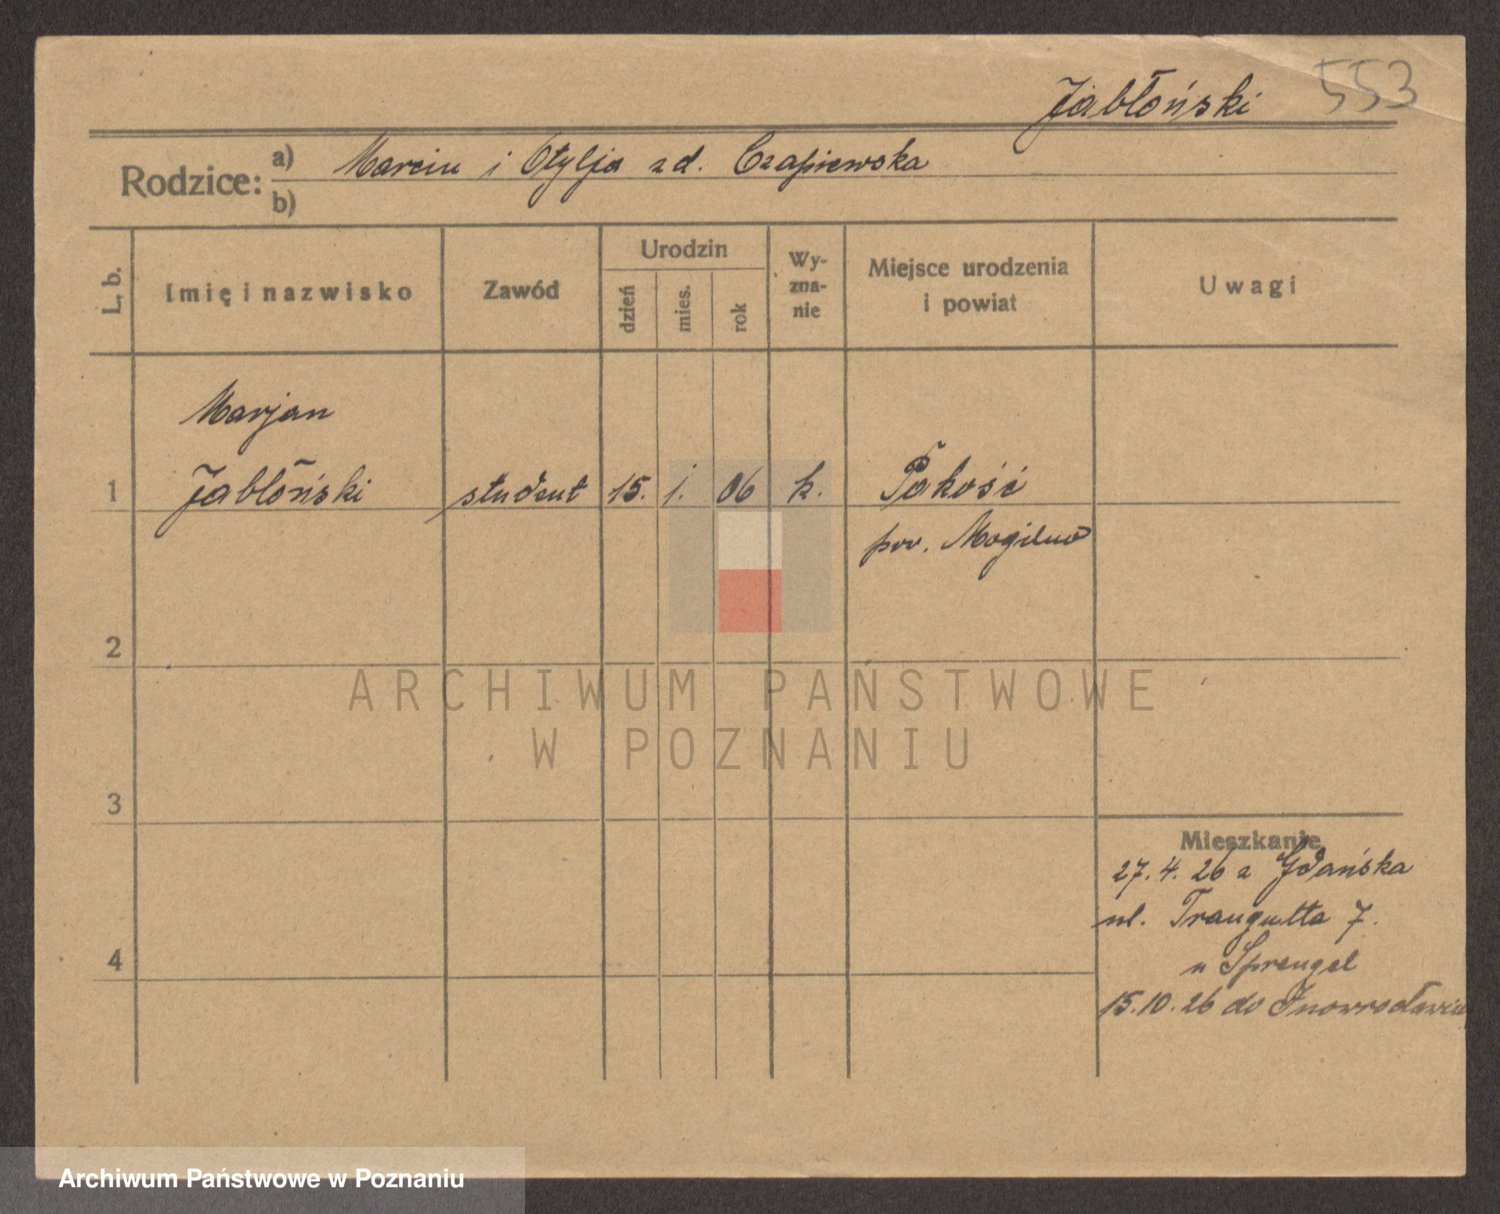 Jabłoński 553
Rodzice: a) Marcin i Otylja z d. Czapiewska
b)
L. b.
Imię i nazwisko
Zawód
Urodzin
dzień
mies.
rok
Wy-
zna-
nie
Miejsce urodzenia
i powiat
Uwagi
Marjan
1 Jabłoński student 15. 1. 06 k. Pakość
pow. Mogilno
2
ARCHIWUM PAŃSTWOWE
W POZNANIU
3
Mieszkanie
27.4.26 z Gdańska
ul. Traugutta 7.
u Sprengel
4
15.10.26 do Inowrocławia
Archiwum Państwowe w Poznaniu